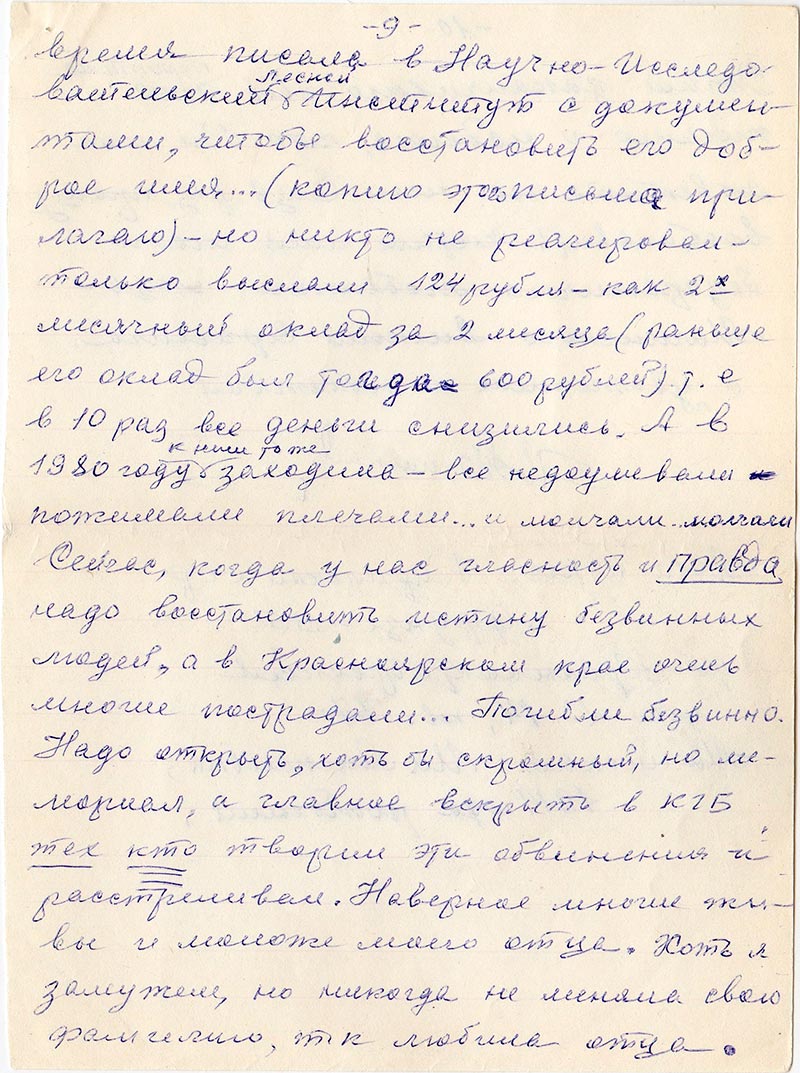 -9-
время писала в Научно-Исследо-
вательский Лесной Институт с докумен-
тами, чтобы восстановить его доб-
рое имя... (копию этого письма при-
лагаю) - но никто не реагировал -
только выслали 124 рубля - как 2х
мисячный оклад за 2 мисяца (раньше
его оклад был тогда 600 рублей). т. е
в 10 раз все деньги снизились. А в
1980 году к ним тоже заходила - все недоумевали
пожимали плечами... и молчали.. молчали
Сейчас, когда у нас гласность и правда
надо восстановить истину безвинных
людей, а в Красноярском крае очень
многие пострадали... Погибли безвинно.
Надо открыть, хоть бы скромный, но ме-
мориал, а главное вскрыть в КГБ
тех кто творил эти обвинения и
расстреливал. Наверное многие жи-
вы и моложе моего отца. Хоть я
замужем, но никогда не меняла свою
фамилию, т к любила отца.